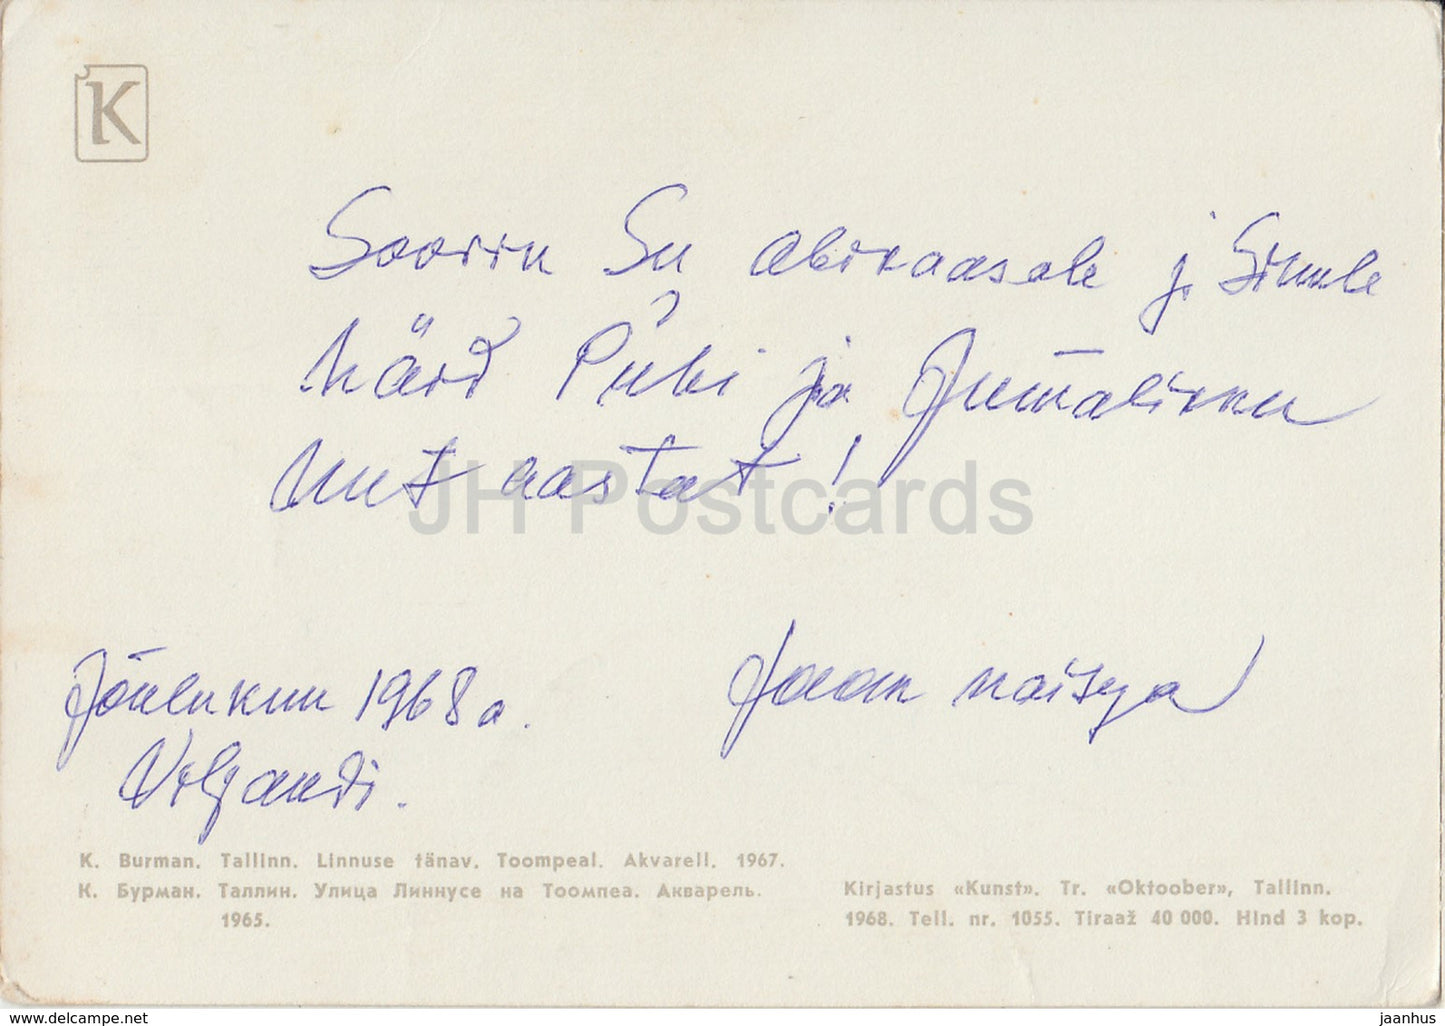 K
Soovin Su abikaasale j. Sinule
häid Pühi ja Jumalikku
uut aastat!
JH Postcards
Jõulukuu 1968 a.
Viljandi.
Jaan naisega
K. Burman. Tallinn. Linnuse tänav. Toompeal. Akvarell. 1967.
К. Бурман. Таллин. Улица Линнусе на Тоомпеа. Акварель.
1965.
Kirjastus «Kunst». Tr. «Oktoober», Tallinn.
1968. Tell. nr. 1055. Tiraaž 40 000. Hind 3 kop.
www.delcampe.net
jaanhus